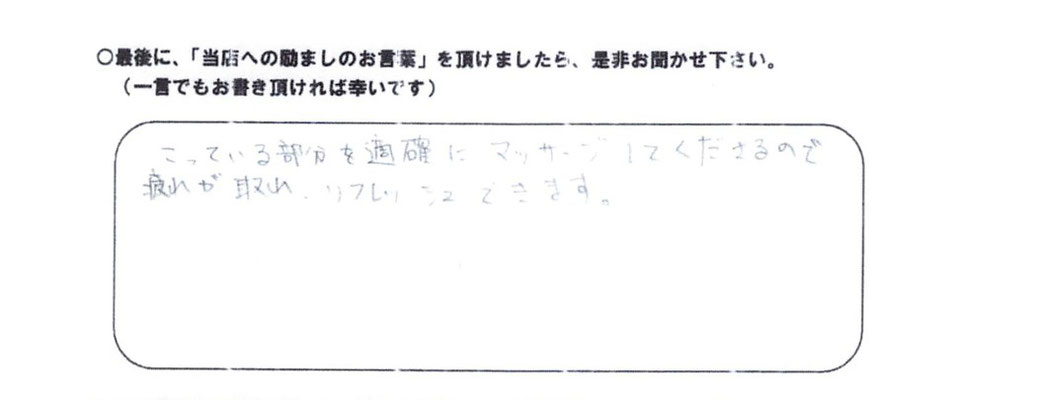 ○最後に、「当店への励ましのお言葉」を頂けましたら、是非お聞かせ下さい。
（一言でもお書き頂ければ幸いです）
こっている部分を適確に マッサージしてくださるので
疲れが取れ、リフレッシュできます。